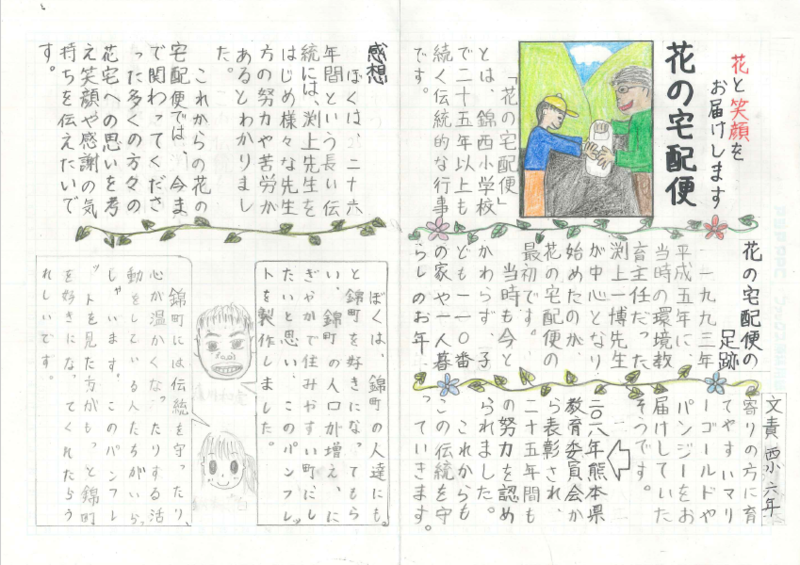 花と笑顔を
お届けします
花の宅配便
「花の宅配便」
とは、錦西小学校
で二十五年以上も
続く伝統的な行事
です。
花の宅配便の
足跡
一九九三年
平成五年に、
当時の環境教
育主任だった
渕上一博先生
が中心となり
始めたのが、
花の宅配便の
最初です。
当時も今と
かわらず、子
ども一一〇番
の家や一人暮
らしのお年
寄りの方に育
てやすいマリ
ーゴールドや
パンジーをお
届けしていた
そうです。
二〇一八年熊本県
教育委員会か
ら表彰され、
二十五年間も
の努力を認め
られました。
これからも
この伝統を守
っていきます。
文責 西小 六年
感想
ぼくは、二十六
年間という長い伝
統には、渕上先生を
はじめ様々な先生
方の努力や苦労が
あるとわかりまし
た。
これからの花の
宅配便では、今ま
で関わってくださ
った多くの方々の
花宅への思いを考
え笑顔や感謝の気
持ちを伝えたいで
す。
ぼくは、錦町の人達にも。
と錦町を好きになってもら
い、錦町の人口が増え、に
ぎやかで住みやすい町にし
たいと思い、このパンフレッ
トを製作しました。
錦町には伝統を守ったり、
心が温かくなったりする活
動をしている人たちがいら
っしゃいます。このパンフレ
ットを見た方がもっと錦町
を好きになってくれたらう
れしいです。